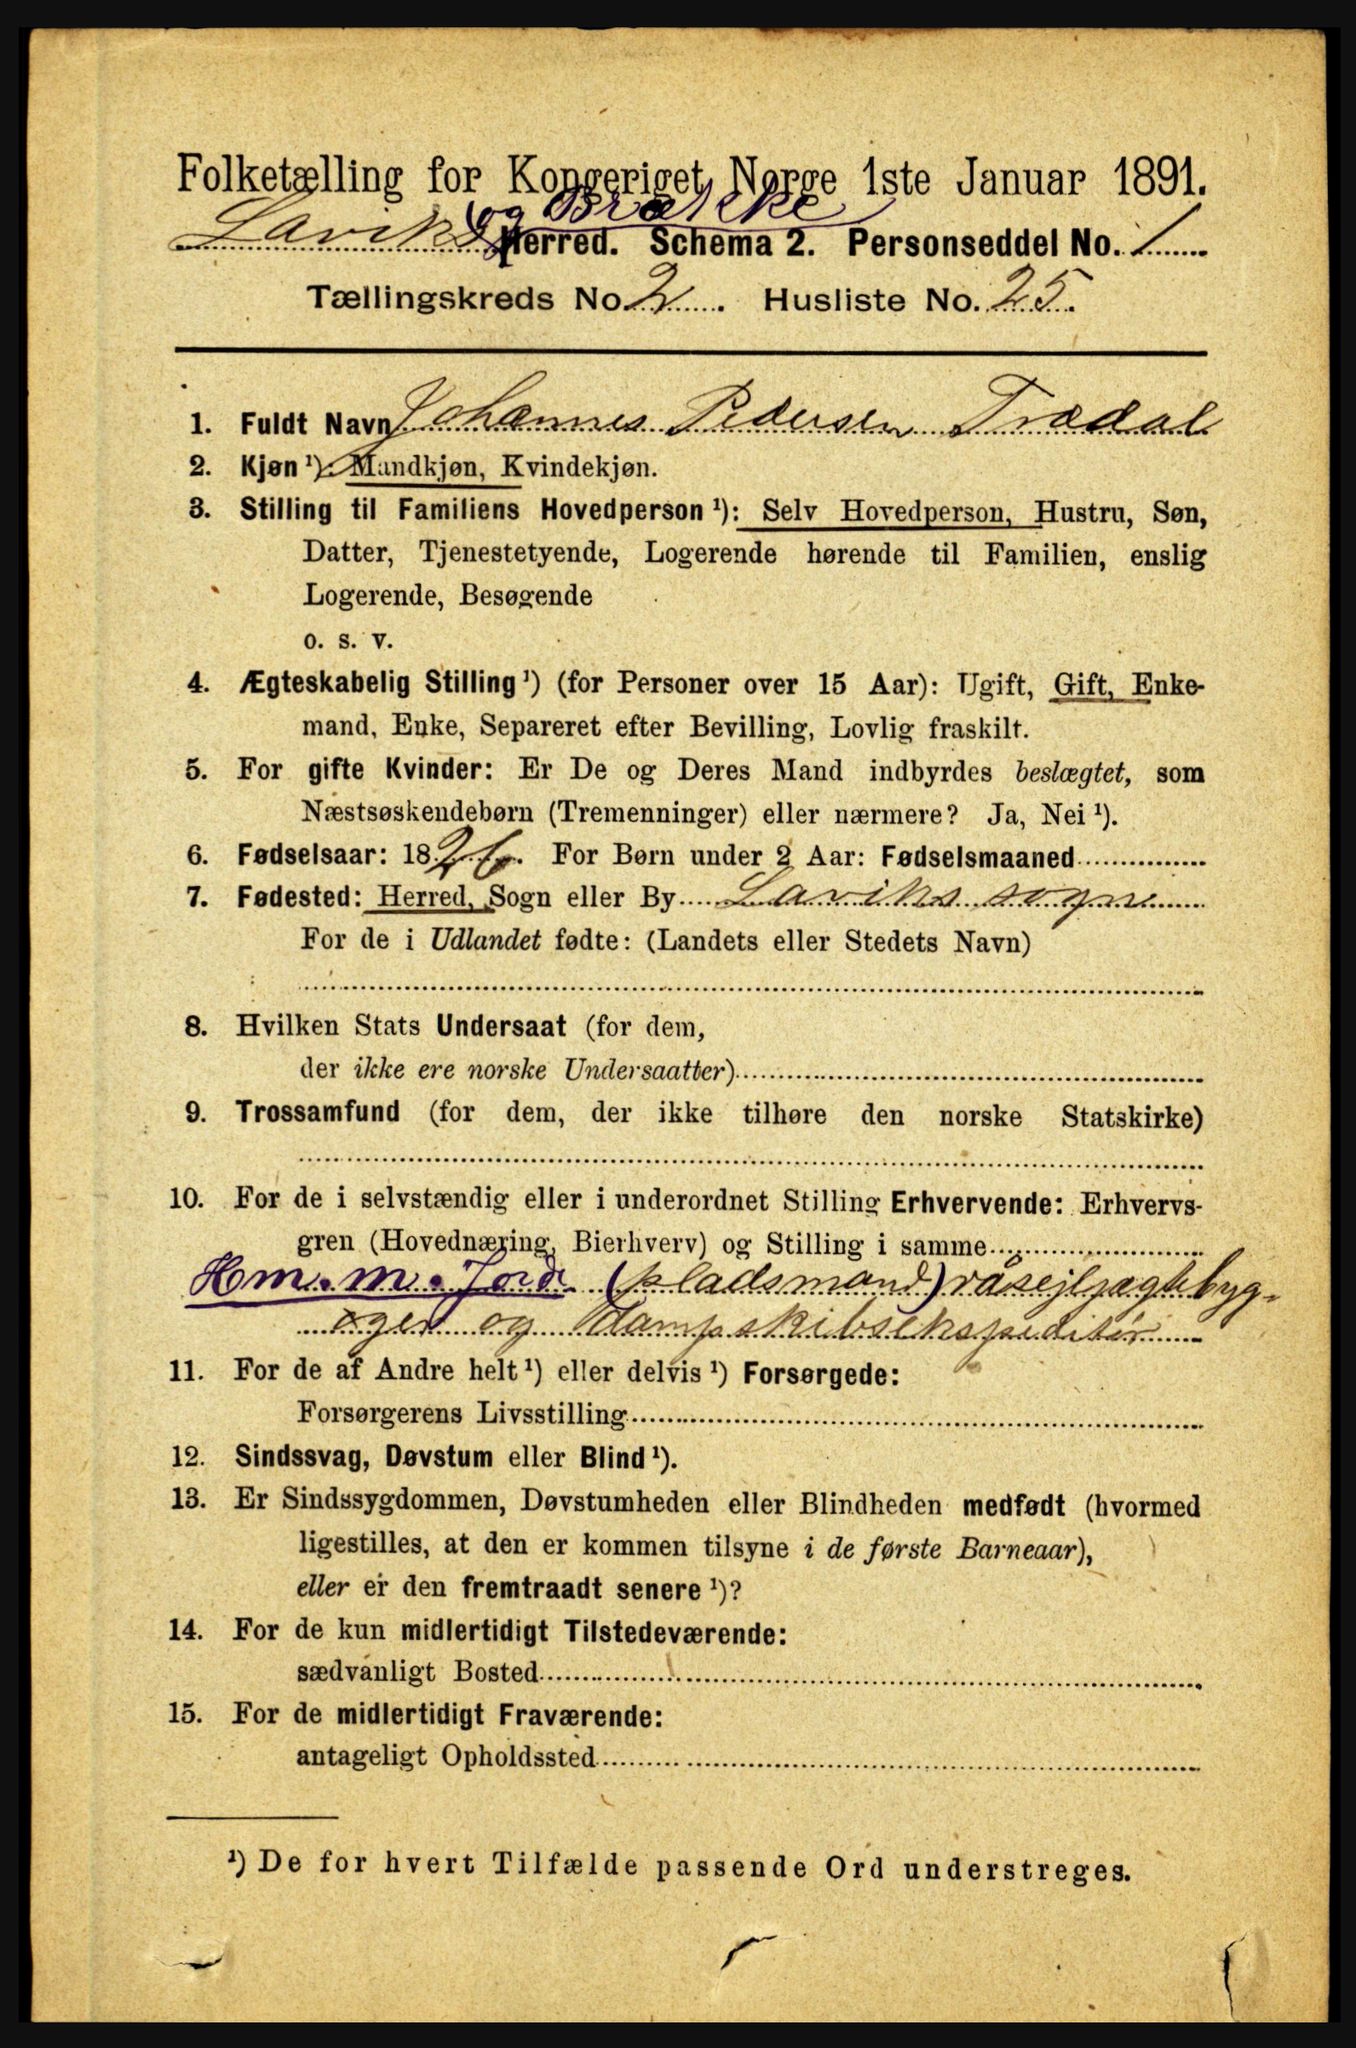 Folketælling for Kongeriget Norge 1ste Januar 1891.
og Brække
Laviks Herred. Schema 2. Personseddel No. 1
Tællingskreds No. 2. Husliste No. 25.
1. Fuldt Navn Johannes Pedersen Trædal
2. Kjøn ¹): Mandkjøn, Kvindekjøn.
3. Stilling til Familiens Hovedperson ¹): Selv Hovedperson, Hustru, Søn,
Datter, Tjenestetyende, Logerende hørende til Familien, enslig
Logerende, Besøgende
o. s. v.
4. Ægteskabelig Stilling ¹) (for Personer over 15 Aar): Ugift, Gift, Enke-
mand, Enke, Separeret efter Bevilling, Lovlig fraskilt.
5. For gifte Kvinder: Er De og Deres Mand indbyrdes beslægtet, som
Næstsøskendebørn (Tremenninger) eller nærmere? Ja, Nei ¹).
6. Fødselsaar: 1826. For Børn under 2 Aar: Fødselsmaaned
7. Fødested: Herred, Sogn eller By Laviks sogne
For de i Udlandet fødte: (Landets eller Stedets Navn)
8. Hvilken Stats Undersaat (for dem,
der ikke ere norske Undersaatter)
9. Trossamfund (for dem, der ikke tilhøre den norske Statskirke)
10. For de i selvstændig eller i underordnet Stilling Erhvervende: Erhvervs-
gren (Hovednæring, Bierhverv) og Stilling i samme
Hm. m. Jord (pladsmand) råsejljagtebyg-
og dampskibsekspeditør
11. For de af Andre helt ¹) eller delvis ¹) Forsørgede:
Forsørgerens Livsstilling
12. Sindssvag, Døvstum eller Blind ¹).
13. Er Sindssygdommen, Døvstumheden eller Blindheden medfødt (hvormed
ligestilles, at den er kommen tilsyne i de første Barneaar),
eller er den fremtraadt senere ¹)?
14. For de kun midlertidigt Tilstedeværende:
sædvanligt Bosted
15. For de midlertidigt Fraværende:
antageligt Opholdssted
¹) De for hvert Tilfælde passende Ord understreges.